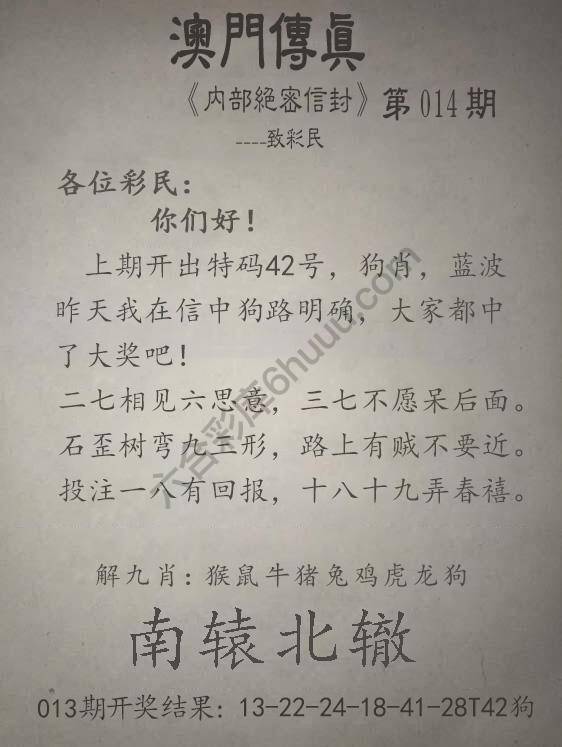 澳門傳真
《内部絕密信封》第014期
----致彩民
各位彩民：
你们好！
上期开出特码42号，狗肖，蓝波
昨天我在信中狗路明确，大家都中
了大奖吧！
二七相见六思意，三七不愿呆后面。
石歪树弯九三形，路上有贼不要近。
投注一八有回报，十八十九弄春禧。
六合彩库6huuu.com
解九肖：猴鼠牛猪兔鸡虎龙狗
南辕北辙
013期开奖结果：13-22-24-18-41-28T42狗